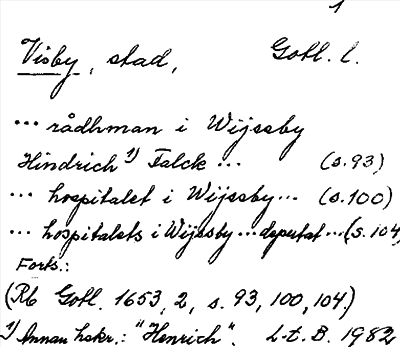 1
Visby, stad, Gotl. l.
... rådhman i Wijssby
Hindrich 1) Falck ... (s. 93)
... hospitalet i Wijssby ... (s. 100)
... hospitalets i Wijssby ... deputat ... (s. 104)
Forts.:
(Rb Gotl. 1653, 2, s. 93, 100, 104.)
1) Annan hskr.: "Henrich". L.t. B. 1982